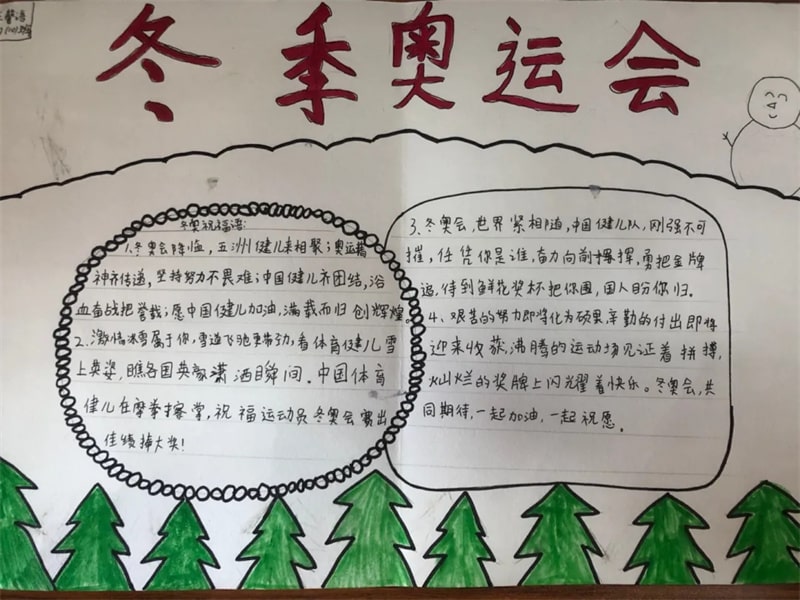 冬季奥运会
冬奥祝福语:
1.冬奥会降临,五洲健儿来相聚;奥运精
神齐传递,坚持努力不畏难;中国健儿齐团结,浴
血奋战把誉载;愿中国健儿加油,满载而归创辉煌。
2.激情冰雪属于你,雪道飞驰更带劲,看体育健儿雪
上英姿,瞧各国英豪潇洒瞬间。中国体育
健儿在摩拳擦掌,祝福运动员冬奥会赛出
佳绩捧大奖!
3.冬奥会,世界紧相随,中国健儿队,刚强不可
摧,任凭你是谁,奋力向前挥,勇把金牌
追,待到鲜花奖杯把你围,国人盼你归。
4、艰苦的努力即将化为硕果辛勤的付出即将
迎来收获沸腾的运动场见证着拼搏,
灿烂的奖牌上闪耀着快乐。冬奥会,共
同期待,一起加油,一起祝愿。